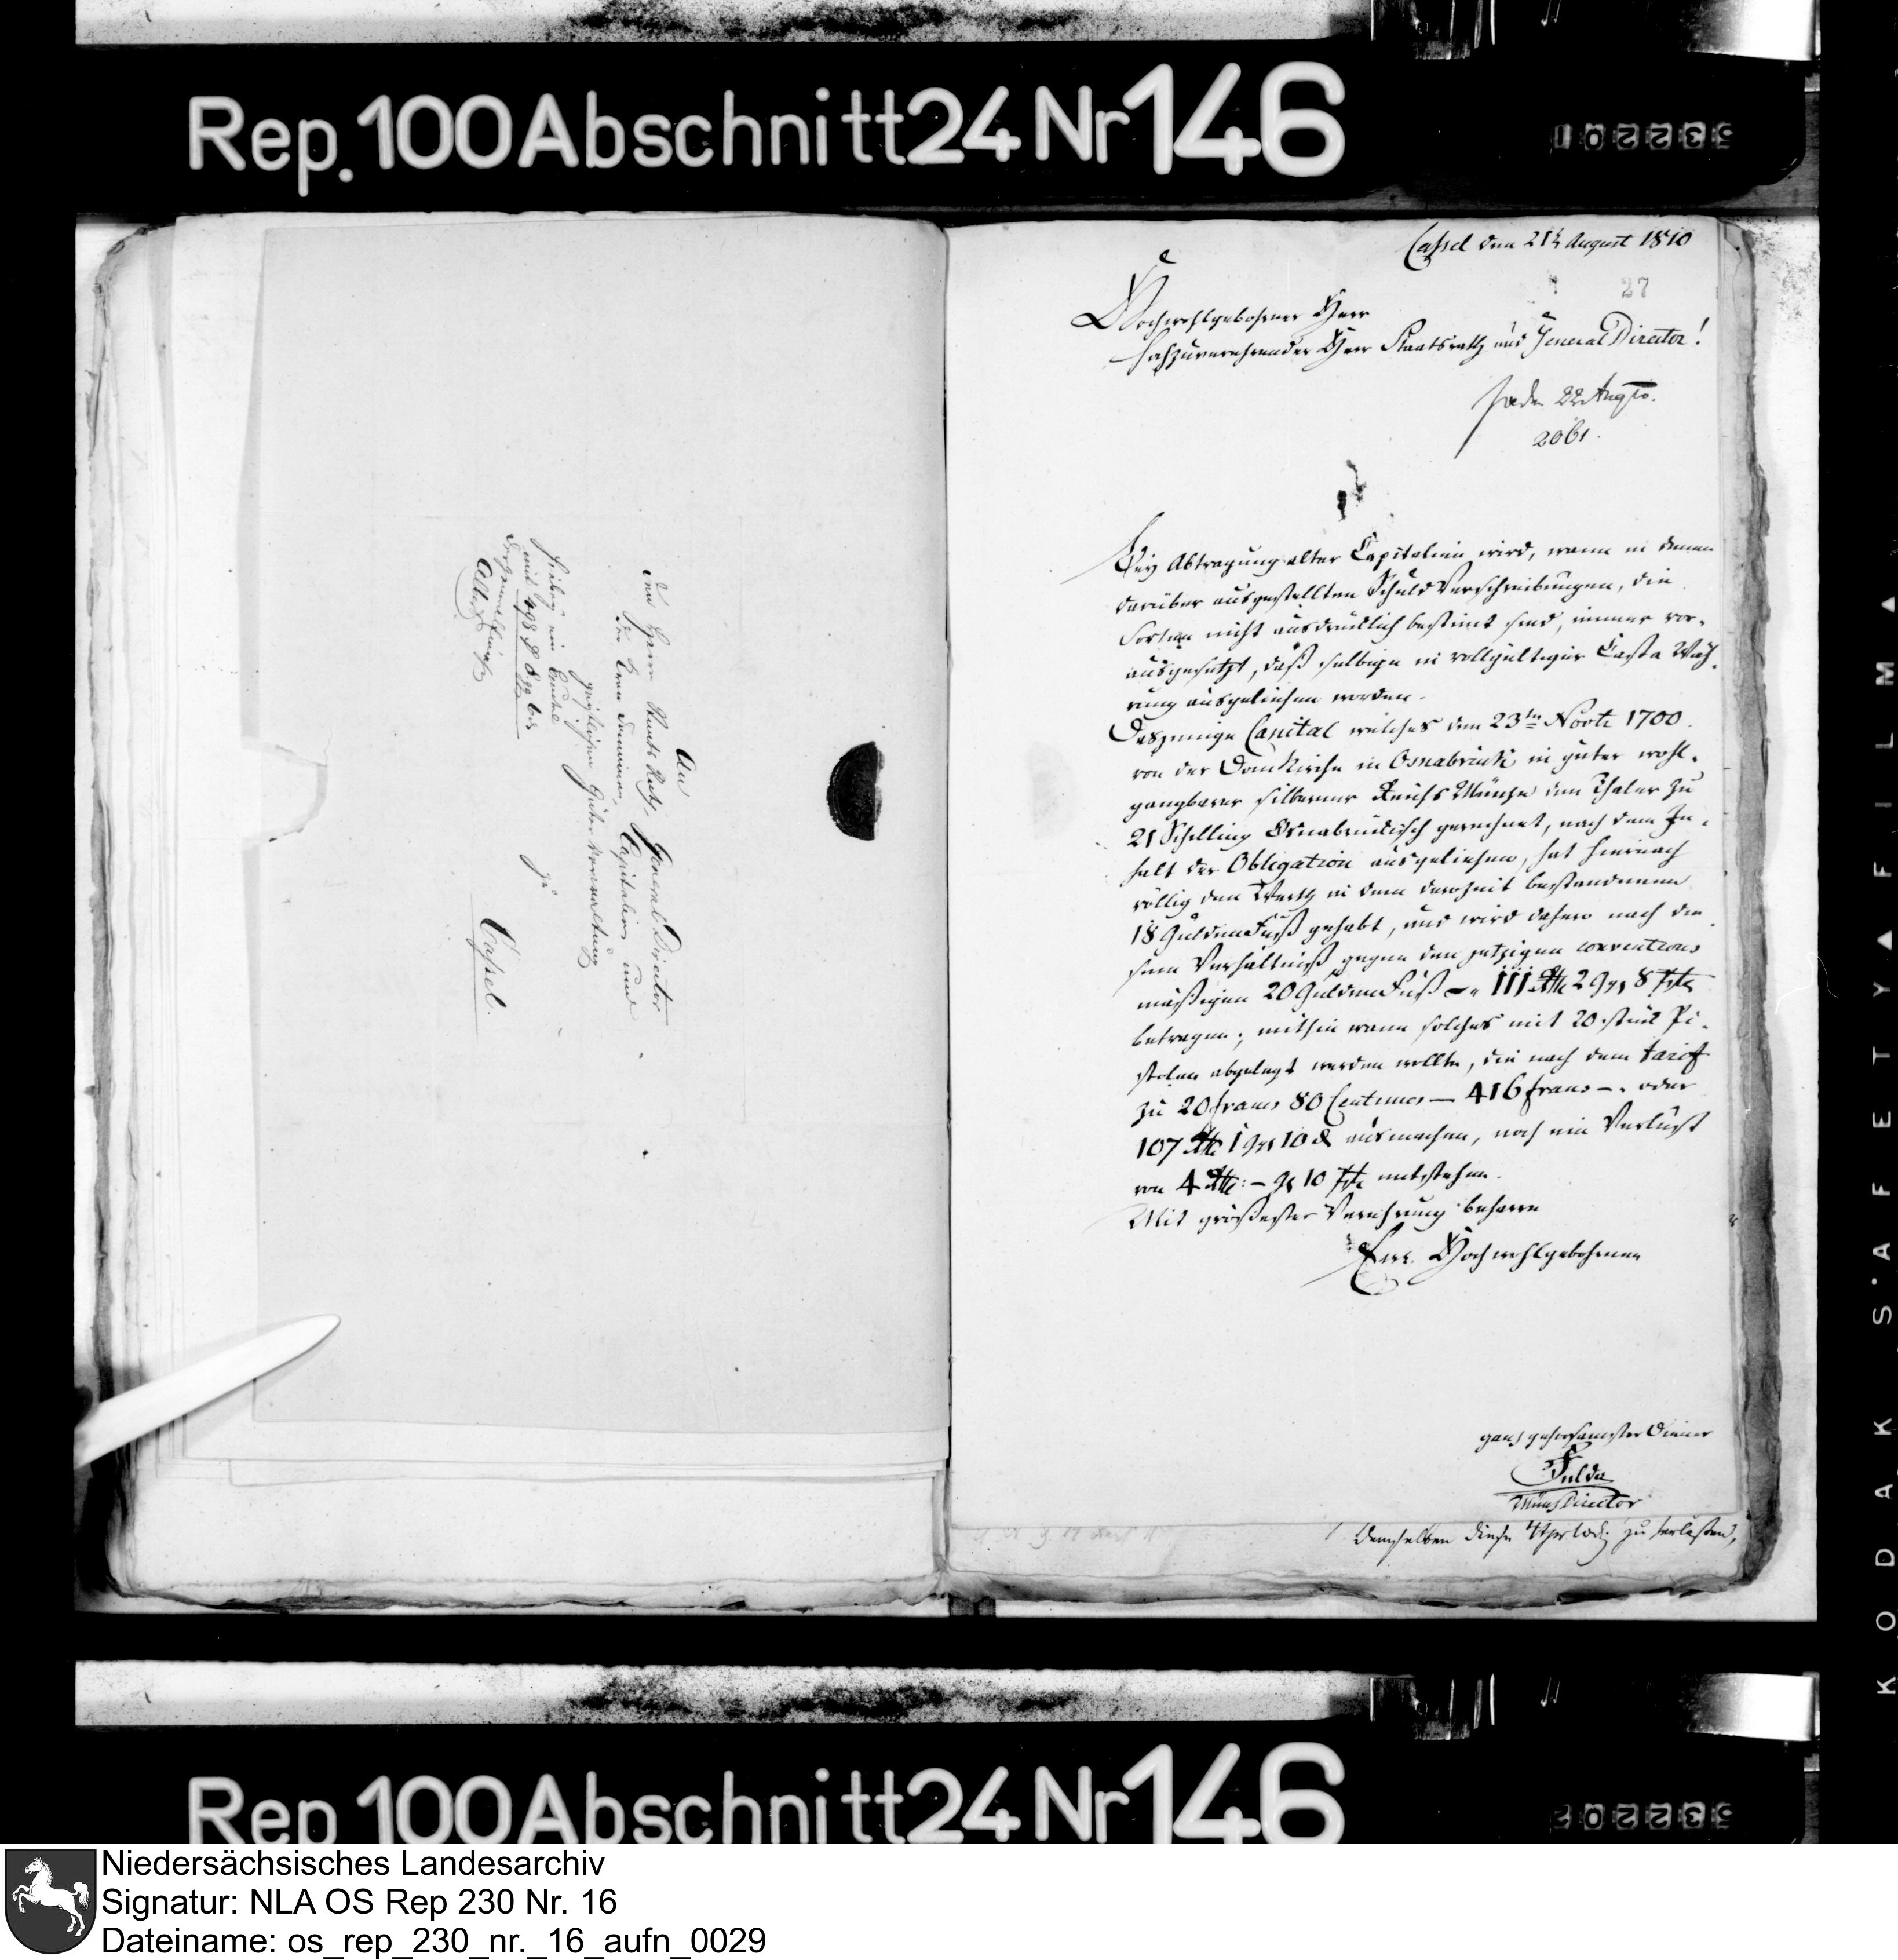 Rep. 100 Abschnitt 24 Nr 146
An
den Herrn Staats Rath, General Director
der Kron Domainen, Capitalien und
geistlichen Güter Verwaltung
zu
Cassel.
hiebey ein Beutel
Cassel den 21t August 1810
27
Hochwohlgebohrner Herr
Hochzuverehrender Herr Staatsrath und General Director!
22 Aug
2061.
Bey Abtragung alter Capitalien wird, wenn in denen
darüber ausgestellten Schuld Verschreibungen, die
Sorten nicht ausdrücklich bestimt sind, immer vor-
ausgesetzt, daß selbige in vollgültiger Cassa Wäh-
rung ausgeliehen worden.
Dasjenige Capital welches den 23ten Novbr 1700
von der Domkirche in Osnabrück in guter wohl-
gangbarer silberner Reichs Münze den Thaler zu
21 Schilling Osnabrückisch gerechnet, nach dem In-
halt der Obligation ausgeliehen, hat hiernach
völlig den Werth in dem derzeit bestandenen
18 Gulden Fuß gehabt, und wird daher nach die-
sem Verhältniß gegen den jetzigen conventions
mäßigen 20 Gulden Fuß — 111 Rthlr 2 ggr 8 Pfg
betragen; mithin wenn solches mit 20 stück Pi-
stolen abgelegt werden wollte, die nach dem tarif
zu 20 francs 80 Centimes — 416 francs — oder
107 Rthlr 1 ggr 10 d ausmachen, noch ein Verlust
von 4 Rthlr: — gr 10 Pfg entstehen.
Mit größester Verehrung beharre
Euer Hochwohlgebohrnen
ganz gehorsamster Diener
Fulda
Münz Director
Demselben diese zu
KODAK SAFETY FILM
Rep 100 Abschnitt 24 Nr 146
Niedersächsisches Landesarchiv
Signatur: NLA OS Rep 230 Nr. 16
Dateiname: os_rep_230_nr._16_aufn_0029